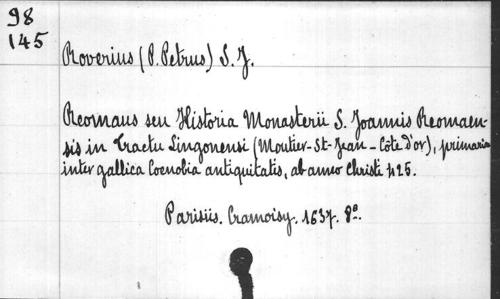 98
145
Roverius (P. Petrus) S. J.
Reomaus seu Historia Monasterii S. Joannis Reomaen-
sis in Tractu Lingonensi (Moutier-St-Jean - Côte d'or), primaria
inter gallica Coenobia antiquitatis, ab anno Christi 425.
Parisiis. Cramoisy. 1637. 8º.